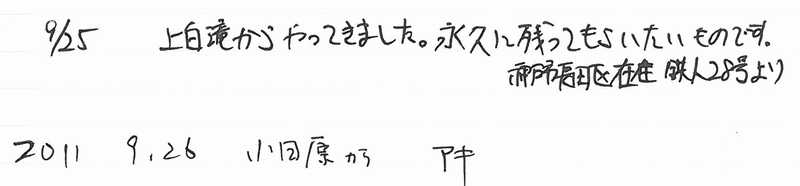 9/25 上白滝からやってきました。永久に残ってもらいたいものです。
神戸市長田区在住 鉄人28号より
2011 9.26 小田原から アキ